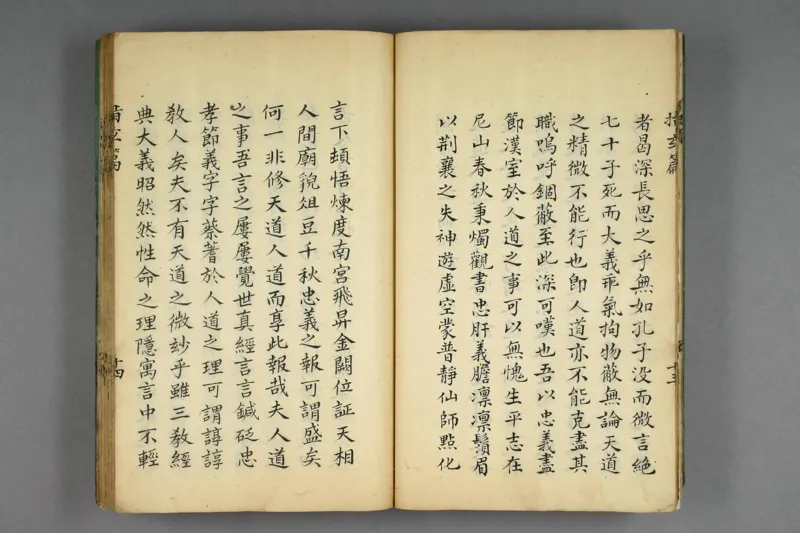 者曷深長思之乎無如孔子没而微言絶
七十子死而大義乖氣拘物蔽無論天道
之精微不能行也卽人道亦不能克盡其
職嗚呼錮蔽至此深可嘆也吾以忠義盡
節漢室於人道之事可以無愧生平志在
尼山春秋秉燭觀書忠肝義膽凛凛鬚眉
以荆襄之失神遊虛空蒙普靜仙師㸃化
言下頓悟煉度南宮飛昇金闕位証天相
人間廟貌俎豆千秋忠義之報可謂盛矣
何一非修天道人道而享此報哉夫人道
之事吾言之屢屢覺世真經言言鍼砭忠
孝節義字字蔡蓍於人道之理可謂諄諄
教人矣夫不有天道之微妙乎雖三教經
典大義昭然然性命之理隱寓言中不輕
十四